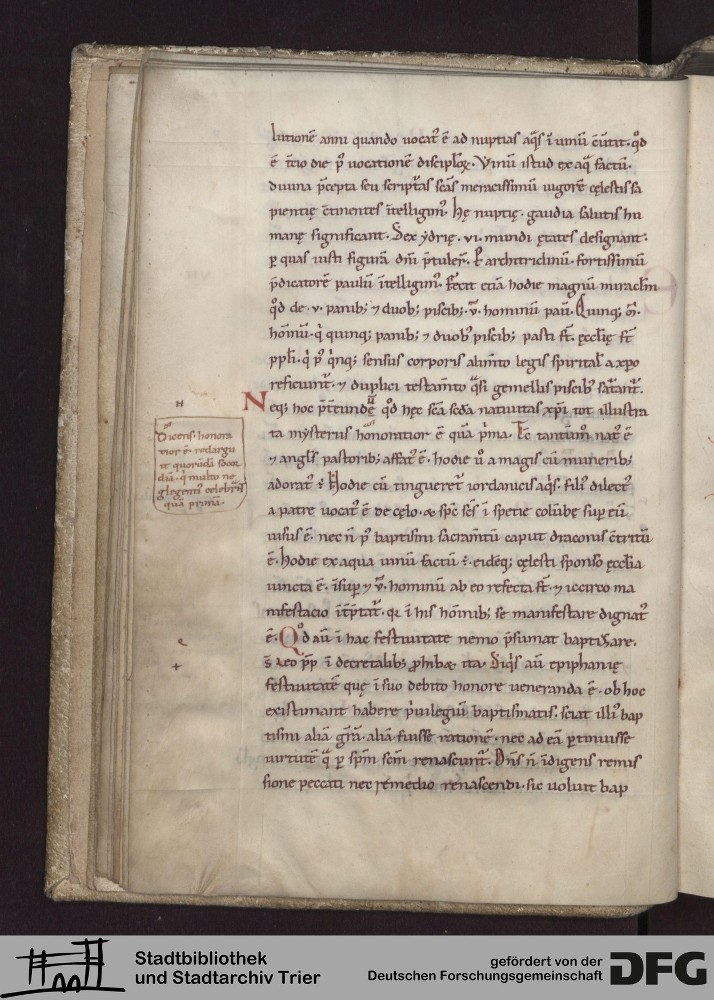 lutionē anni quando vocat᷒ ē ad nuptias aq̄s ī uinū c̄utit. qd̓
ē t̄cio die p᷒ uocationē discipuloꝝ. Vinū istud ex aq̄ factū.
diuina p̄cepta seu script᷒as sc̄as meracissimū uigorē cęlestis sa
pientię c̄tinentes ītelligim᷒. hę nuptię. gaudia salutis hu
manę significant. Sex ydrię. vi. mundi ętates designant.
ꝑ quas iusti figurā dn̄i p̄tuler̄. P̱ architriclinū. fortissimū
p̄dicatorē paulū ītelligim᷒. Fecit etiā hodie magnū miraclm̄
qd̓ de .v. panib; ⁊ duob; piscib; .v̄. hominū pauit. Quinq; m̄.
hōinū. q̇ quinq; panib; ⁊ duob᷒ piscib; pasti st̄. ęcclię st̄
ppl̄i. q̇ p᷒ q̇nq; sensus corporis alim̄to legis spirital̄ a xp̄o
reficiunt᷒. ⁊ duplici testam̄to q̄si gemellis piscib᷒ sat᷒ant᷒.
Neq; hoc p̄t̄eundū ē qd̓ hęc sc̄a sc̄da natiuitas xp̄i tot illustra
ta mysteriis honoratior ē quā p̄ma. Tc̄ tantum̄ nat᷒ ē
⁊ angl̄s pastorib; affat᷒ ē. hodie u̓ a magis cū munerib;
adorat᷒ ē. Hodie cū tingueret᷒ iordanicis aq̄s. fili᷒ dilect᷒
a patre uocat᷒ ē de cęlo. & sp̄c sc̄s ī specie colūbę sup eū
uisus ē. nec n̄ p᷒ baptismi sacram̄tū caput draconis c̄tritū
ē. hodie ex aqua uinū factū ē. eidēq; cęlesti sponso ęcclīa
iuncta ē. īsup ⁊ .v̄. hominū ab eo refecta st̄. ⁊ iccirco ma
nifestacio īt̄p̄tat᷒. qꝛ ī his hōinib; se manifestare dignat᷒
ē. Qd̓ aū ī hac festiuitate nemo p̄sumat baptizare.
s̄ leo pp̄ ī decretalib; ꝓhib& ita. Siq̇s aū epiphanię
festiuitatē quę ī suo debito honore ueneranda ē. ob hoc
existimant habere ṗuilegiū baptismatis. sciat illi᷒ bap
tismi aliā gr̄am. aliā fuisse rationē. nec ad eā ꝑtinuisse
uirtutē q̄ ꝑ sp̄m sc̄m renascunt᷒. Dn̄s n̄ īdigens remis
sione peccati nec remedio renascendi. sic uoluit bap
N
Dicens. honora
tior ē. redargu
it quorundā socor
diā. q̇ multo ne
glegenti᷒ celebrāt
quā primā.
Stadtbibliothek
und Stadtarchiv Trier
gefördert von der
Deutschen Forschungsgemeinschaft
DFG